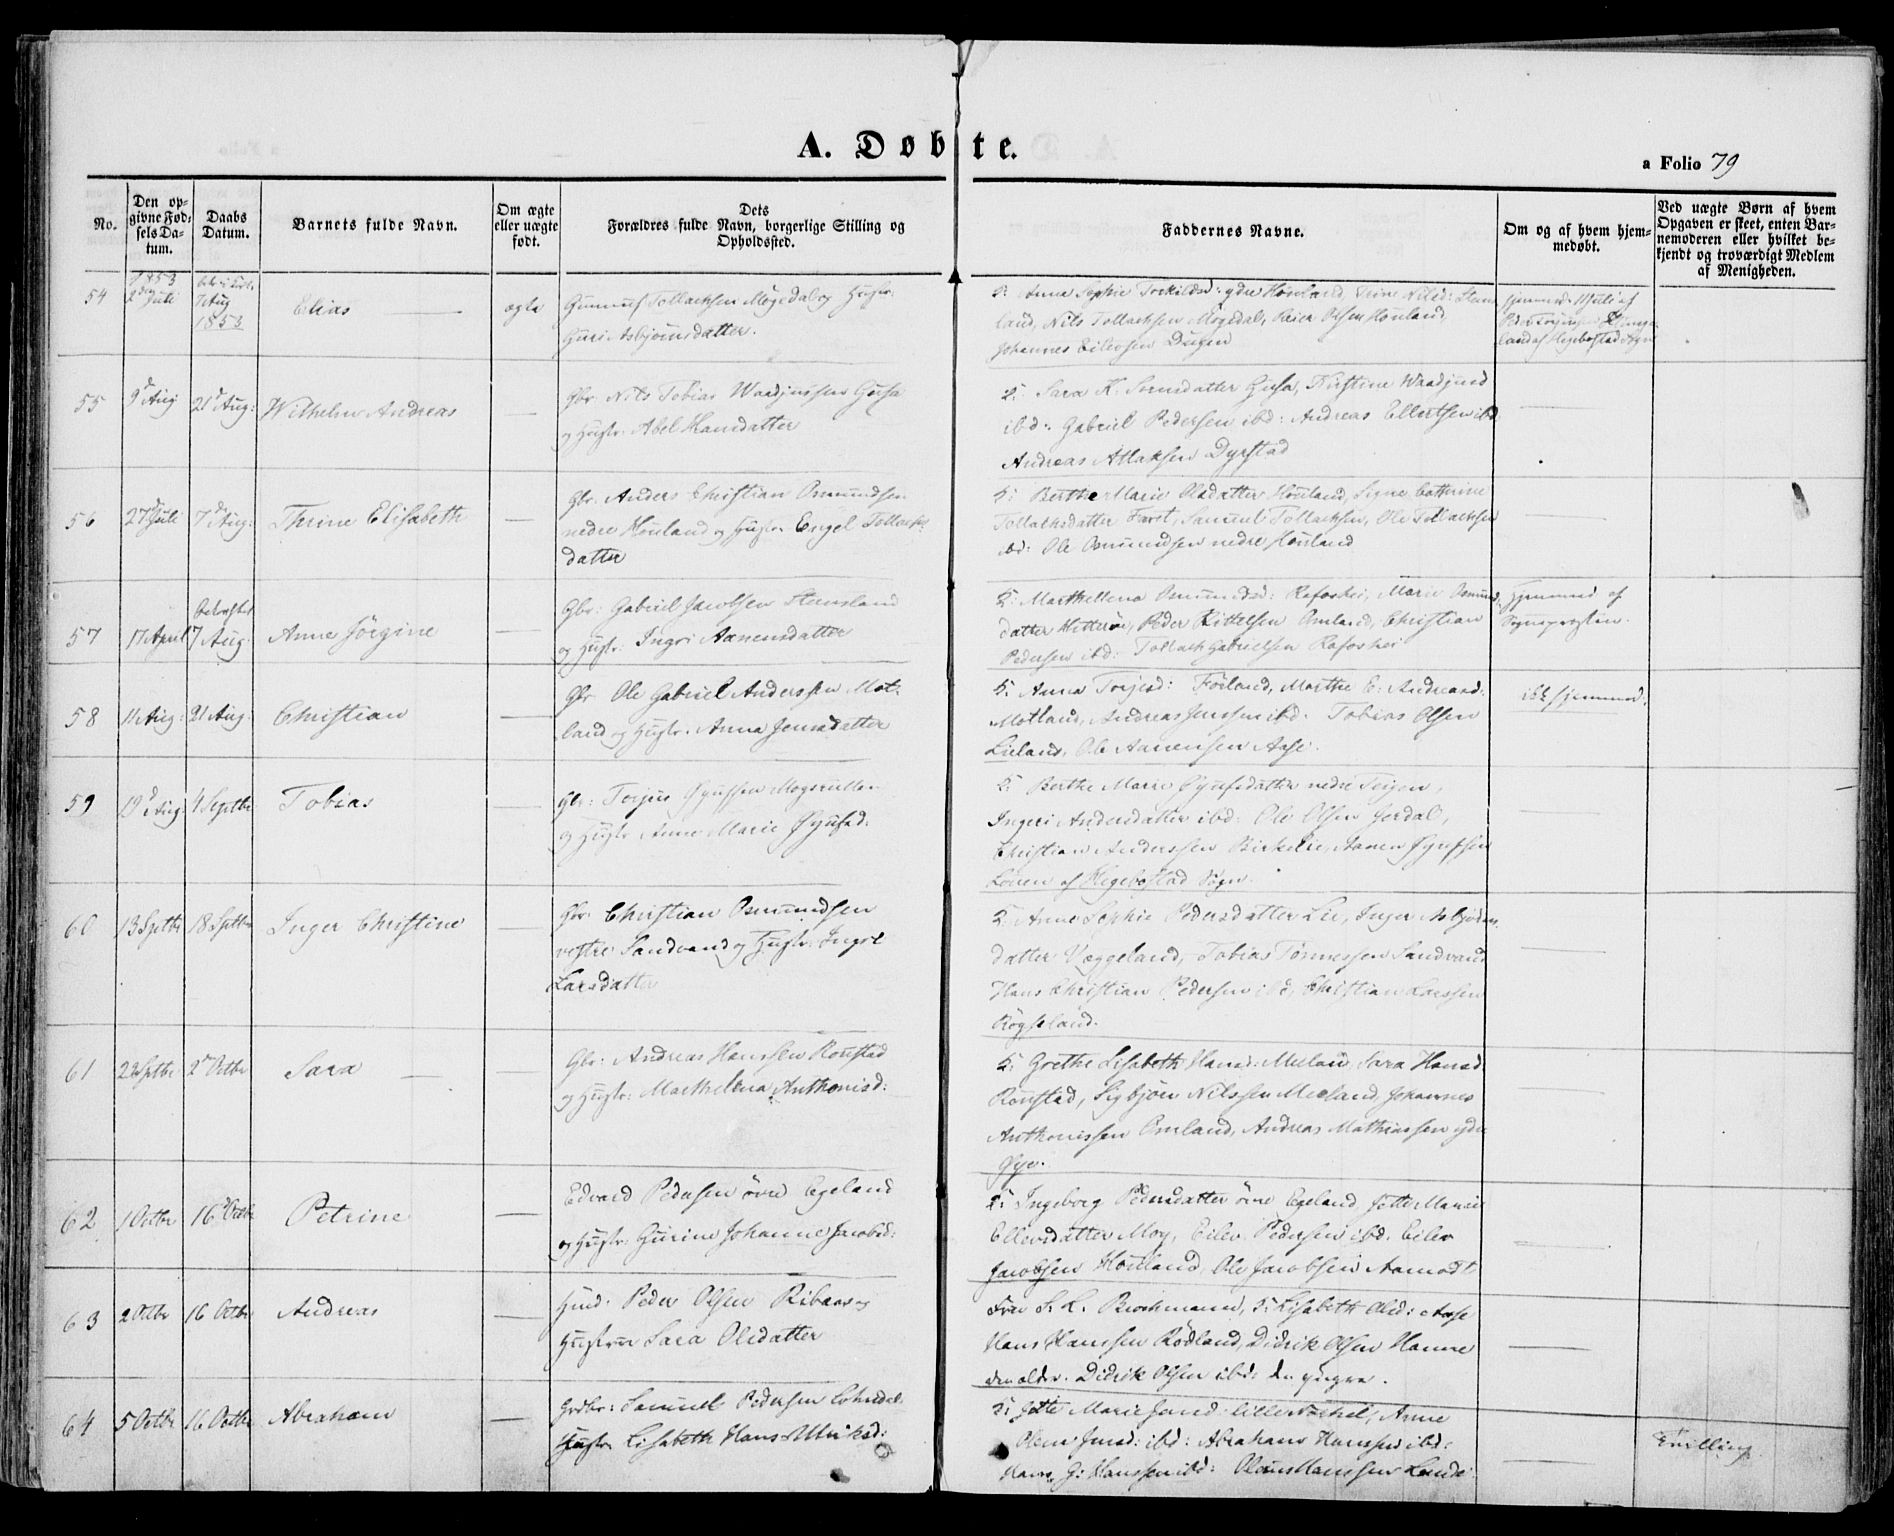 A. Døbte.
a Folio 79
No.
Den op-
givne Fød-
sels Da-
tum.
Daabs
Datum.
Barnets fulde Navn.
Om ægte
eller uægte
født.
Dets
Forældres fulde Navn, borgerlige Stilling og
Opholdssted.
Faddernes Navne.
Om og af hvem hjem-
medøbt.
Ved uægte Børn af hvem
Opgaven er skeet, enten Bar-
nemoderen eller hvilket be-
kjendt og troværdigt Medlem
af Menigheden.
54
1853
2den Juli
7 Aug
1853
Elias
ægte
Gunnuf Tollachsen Mögedal og Hustr:
Guri Asbjörnsdatter.
5: Anna Sophie Torkildsd: ydre Houland, Trine Nilsd:
land, Nils Tollachsen Mögedal, Reier Olsen Houland
Johannes Eilevsen Dugen
hjemmed. Juli af
land af Hegebostad Sogn
55
9d Aug
21d Aug:
Wilhelm Andreas
Gbr: Nils Tobias Waadjussen Gusa
og Hustr: Abel Hansdatter
5: Sara K. Sornsdatter Gusa, Kirstine Waadjusd
ibd: Gabriel Pedersen ibd: Andreas Ellertsen ibd
Andreas Atlaksen Dyrstad
56
27d Juli
7d Aug:
Thrine Elisabeth
Gbr. Anders Christian Osmundsen
nedre Houland og Hustr. Engel Tollachs-
datter
5: Berthe Marie Olsdatter Houland, Signe Cathrine
Tollachsdatter Faret, Samuel Tollachsen, Ole Tollachsen
ibd: Ole Osmundsen nedre Houland
57
17 April
7 Aug:
Anne Jörgine
Gbr: Gabriel Jacobsen Steensland
og Hustr: Ingri Aanensdatter
5: Marthe Lena Osmundsd: Rafoshei, Marie Osmund-
datter Hitterö, Peder Kittelsen Omland, Christian
Pedersen ibd: Tollach Gabrielsen Rafoshei
Hjemmed af
Sognepresten.
58
11 Aug:
21 Aug:
Christian
Gbr Ole Gabriel Anderssen Mot-
land og Hustr. Anna Jensdatter
5: Anna Torjesd: Förland, Marthe E: Andreasd:
Motland, Andreas Jenssen ibd: Tobias Olsen
Lieland, Ole Aanensen Aase.
ikke hjemmed.
59
19d Aug:
4 Septbr
Tobias
Gbr: Torjus Gjufsen
og Hustr Anne Marie
5: Berthe Marie nedre
Ingeri Andersdatter ibd: Ole Olsen
Christian Anderssen Birkelie, Aanen
Löuen af Hegebostad Sogn.
60
13 Septbr
18 Septbr
Inger Christine
Gbr: Christian Osmundsen
vestre Sandvand og Hustr: Ingri
Larsdatter
5: Anne Sophie Pedersdatter Lie, Inger Asbjörns-
datter Væggeland, Tobias Tönnessen Sandvand
Hans Christian Pedersen ibd, Christian Larssen
Rögseland.
61
22 Septbr
2d Octbr
Sara
Gbr: Andreas Hanssen Roustad
og Hustr: Marthe Lena Anthonisd:
5: Grethe Lisabeth Hansd: Meland, Sara Hansd
Roustad, Sigbjörn Nilssen Meeland, Johannes
Anthonissen Omland, Andreas Mathiassen ydre
Öye.
62
1 Octbr
16 Octbr
Petrine
Edvard Pedersen övre Egeland
og Hustr: Gurine Johanne Jacobsd:
5: Ingeborg Pedersdatter övre Egeland, Jette Marie
Ellevsdatter Moy, Eilev Pedersen ibd. Eilev
Jacobsen Houland, Ole Jacobsen Aamodt
63
2 Octbr
16 Octbr
Andreas
Husd. Peder Olsen Ribaas og
Hustrue Sara Olsdatter
Frue S. L. Brochmann, 5: Lisabeth Olsd: Aase
Hans Hanssen Rödland, Didrik Olsen Hanne
den ældre. Didrik Olsen ibd: den yngre.
64
5 Octbr
16 Octbr
Abraham
Grdbr: Samuel Pedersen
Hustr. Lisabeth Hans Ulriksd:
5: Jette Marie Jansd: lille, Anne
Olena Jansd: ibd: Abraham Hanssen ibd:
Hans G: Hanssen ibd: Olaus Hanssen Lande
Tvilling